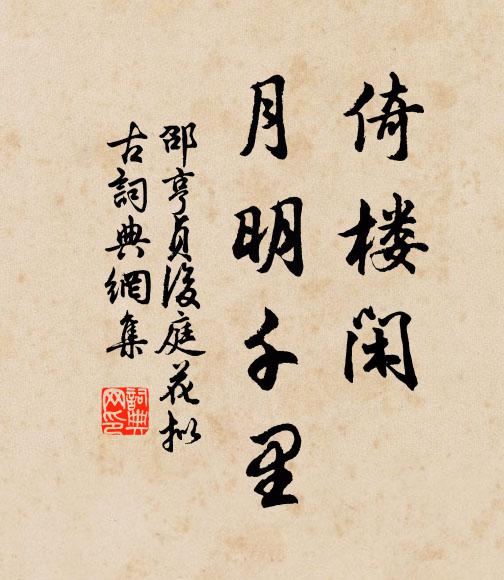 倚楼闲
月明千里
邵亨貞後庭花拟
古詞典網集
詞典
网印